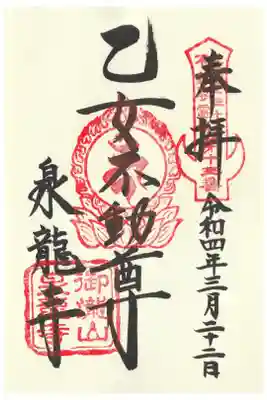 奉拝
令和四年三月二十二日
乙女不動尊
泉龍寺